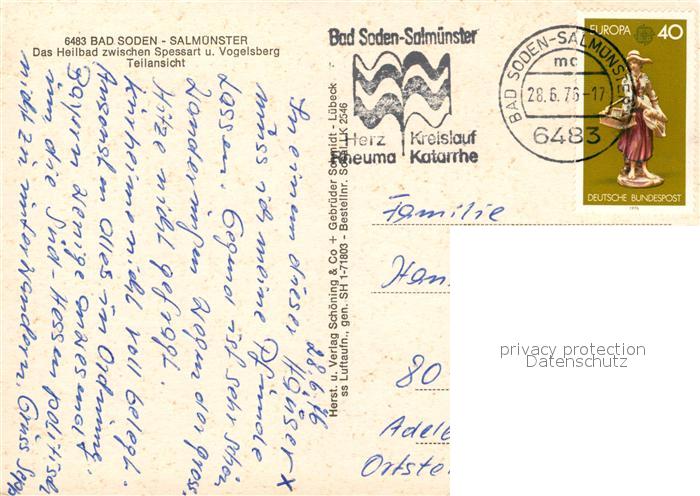 6483 BAD SODEN - SALMÜNSTER
Das Heilbad zwischen Spessart u. Vogelsberg
Teilansicht
Bad Soden-Salmünster
Herz Kreislauf
Rheuma Katarrhe
BAD SODEN-SALMÜNSTER
mc
28.6.76-17
6483
EUROPA 40
DEUTSCHE BUNDESPOST
1976
28.6.76
In einem dieser Häuser x
muss ich meine Pfunde
lassen. Gegend ist sehr schön
Wegen der gross.
Hitze nicht gefragt.
nicht voll belegt.
Ansonsten Alles in Ordnung.
Bayern wenige anwesend
um die Süd-Hessen politisch
nicht zu unterwandern. Gruss Sepp
Herst. u. Verlag Schöning & Co + Gebrüder Schmidt - Lübeck
ss Luftaufn., gen. SH 1-71803 - Bestellnr. Sodal LK 2546
Familie
80
privacy protection
Datenschutz